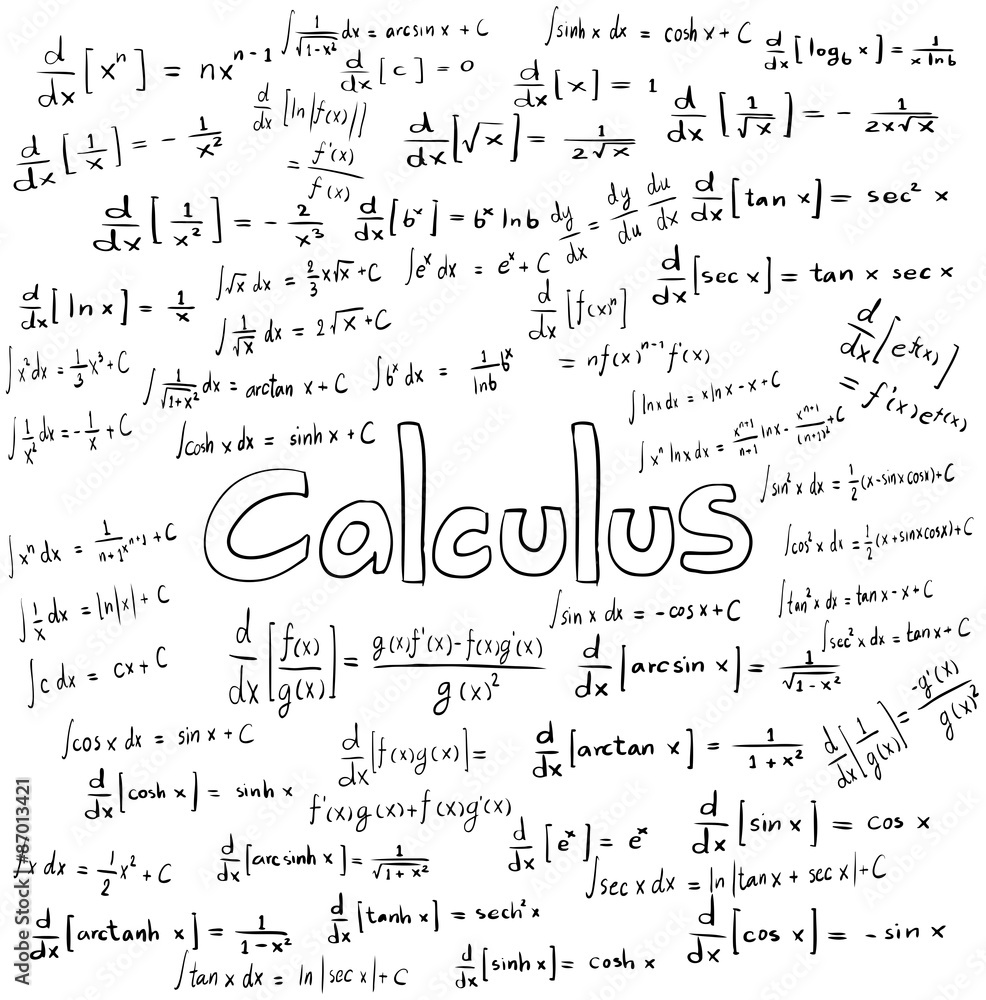 d/dx [xⁿ] = nxⁿ⁻¹
∫ 1/√(1-x²) dx = arcsin x + C
∫sinh x dx = cosh x + C
d/dx [log_b x] = 1/(x ln b)
d/dx [c] = 0
d/dx [x] = 1
d/dx [ln|f(x)|]
= f'(x)/f(x)
d/dx [1/x] = - 1/x²
d/dx [√x] = 1/(2√x)
d/dx [1/√x] = - 1/(2x√x)
d/dx [1/x²] = - 2/x³
d/dx [bˣ] = bˣ ln b
dy/dx = dy/du du/dx
d/dx [tan x] = sec² x
∫√x dx = 2/3 x√x + C
∫eˣ dx = eˣ + C
d/dx [sec x] = tan x sec x
d/dx [ln x] = 1/x
∫ 1/√x dx = 2√x + C
d/dx [f(x)ⁿ]
= nf(x)ⁿ⁻¹ f'(x)
d/dx [e f(x)]
= f'(x) e f(x)
∫x² dx = 1/3 x³ + C
∫ 1/√(1+x²) dx = arctan x + C
∫bˣ dx = 1/ln b bˣ
∫ln x dx = x ln x - x + C
∫ 1/x² dx = - 1/x + C
∫cosh x dx = sinh x + C
∫xⁿ ln x dx = xⁿ⁺¹/(n+1) ln x - xⁿ⁺¹/(n+1)² + C
∫sin² x dx = 1/2 (x - sin x cos x) + C
Calculus
∫xⁿ dx = 1/(n+1) xⁿ⁺¹ + C
∫cos² x dx = 1/2 (x + sin x cos x) + C
∫ 1/x dx = ln|x| + C
∫sin x dx = - cos x + C
∫tan² x dx = tan x - x + C
∫sec² x dx = tan x + C
∫c dx = cx + C
d/dx [f(x)/g(x)] = (g(x)f'(x) - f(x)g'(x))/g(x)²
d/dx [arcsin x] = 1/√(1-x²)
d/dx [1/g(x)] = -g'(x)/g(x)²
∫cos x dx = sin x + C
d/dx [f(x)g(x)] =
f'(x)g(x) + f(x)g'(x)
d/dx [arctan x] = 1/(1+x²)
d/dx [cosh x] = sinh x
d/dx [eˣ] = eˣ
d/dx [sin x] = cos x
∫x dx = 1/2 x² + C
d/dx [arcsinh x] = 1/√(1+x²)
∫sec x dx = ln|tan x + sec x| + C
d/dx [arctanh x] = 1/(1-x²)
d/dx [tanh x] = sech² x
d/dx [cos x] = - sin x
∫tan x dx = ln|sec x| + C
d/dx [sinh x] = cosh x
Adobe Stock | #87013421